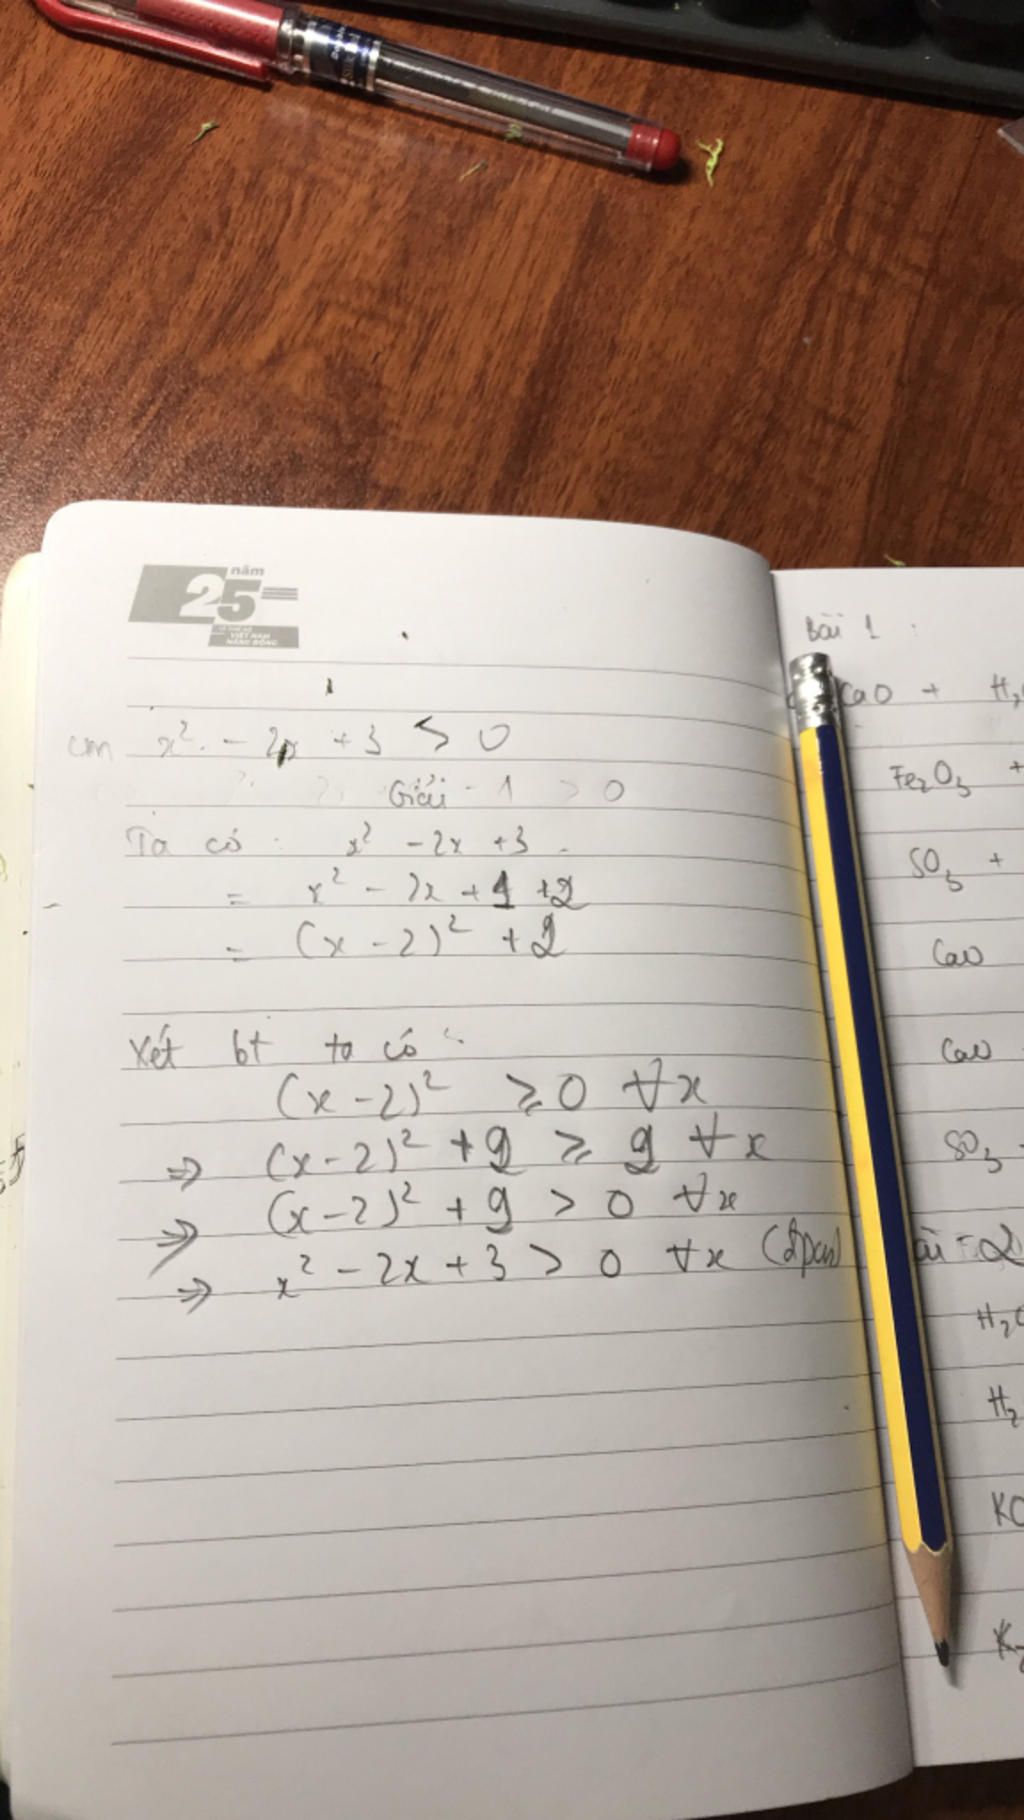 năm
25
VIỆT NAM
NĂNG ĐỘNG
cm x² - 2x + 3 > 0
Giải - 1 > 0
Ta có : x² - 2x + 3
= x² - 2x + 1 + 2
= (x - 2)² + 2
Xét bt ta có :
(x - 2)² ≥ 0 ∀x
⇒ (x - 2)² + 2 ≥ 2 ∀x
⇒ (x - 2)² + 2 > 0 ∀x
⇒ x² - 2x + 3 > 0 ∀x (đpcm)
Bài 1 :
CaO + H₂
Fe₂O₃ +
SO₃ +
CaO
CaO
SO₃
ài 2
H₂O
H₂
KO